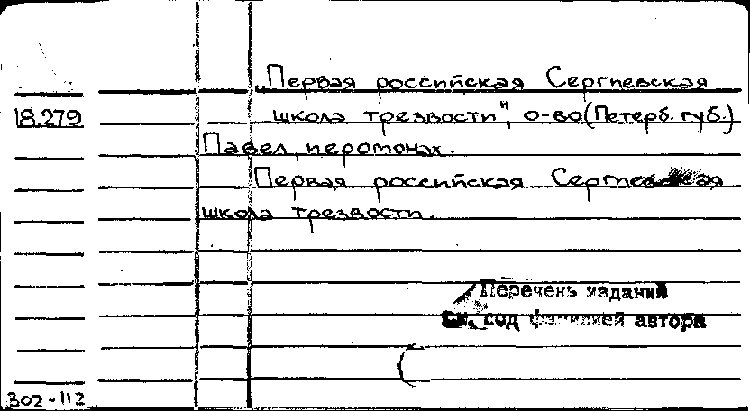 Первая российская Сергиевская
18.279 школа трезвости", о-во (Петерб. губ.)
Павел, иеромонах.
Первая российская Сергиевская
школа трезвости.
Перечень изданий
см. под фамилией автора
302-112